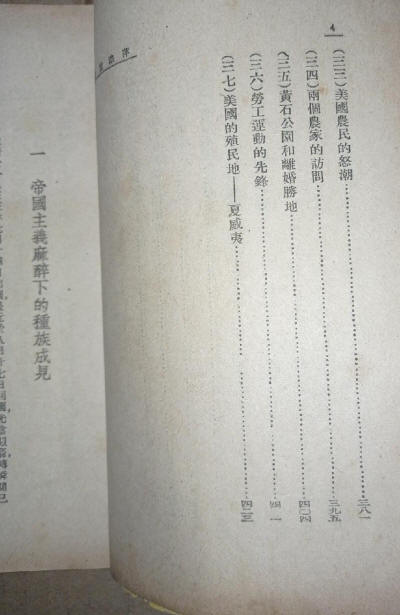 4
(三三)美國農民的怒潮……三八一
(三四)兩個農家的訪問……三九五
(三五)黃石公園和離婚勝地……
(三六)勞工運動的先鋒……四〇四
(三七)美國的殖民地——夏威夷……四二三
一 帝國主義麻醉下的種族成見
八月廿七日回國，光陰似箭，轉瞬間已